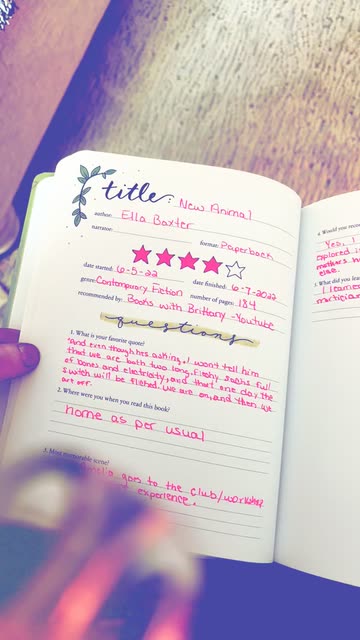 title: New Animal
author: Ella Baxter
narrator: format: Paperback
date started: 6-5-22 date finished: 6-7-2022
genre: Contemporary Fiction number of pages: 184
recommended by: Books with Brittany - Youtube
questions
1. What is your favorite quote?
"And even though he's asking, I won't tell him
that we are both two long, fleshy sacks full
of bones and electricity, and that one day the
switch will be flicked we are on, and then we
are off.
2. Where were you when you read this book?
home as per usual
3. Most memorable scene?
goes to the club/workshop
experience.
4. Would your
Yes, I
explored
mothers
else.
5. What did you
I learned
mortician